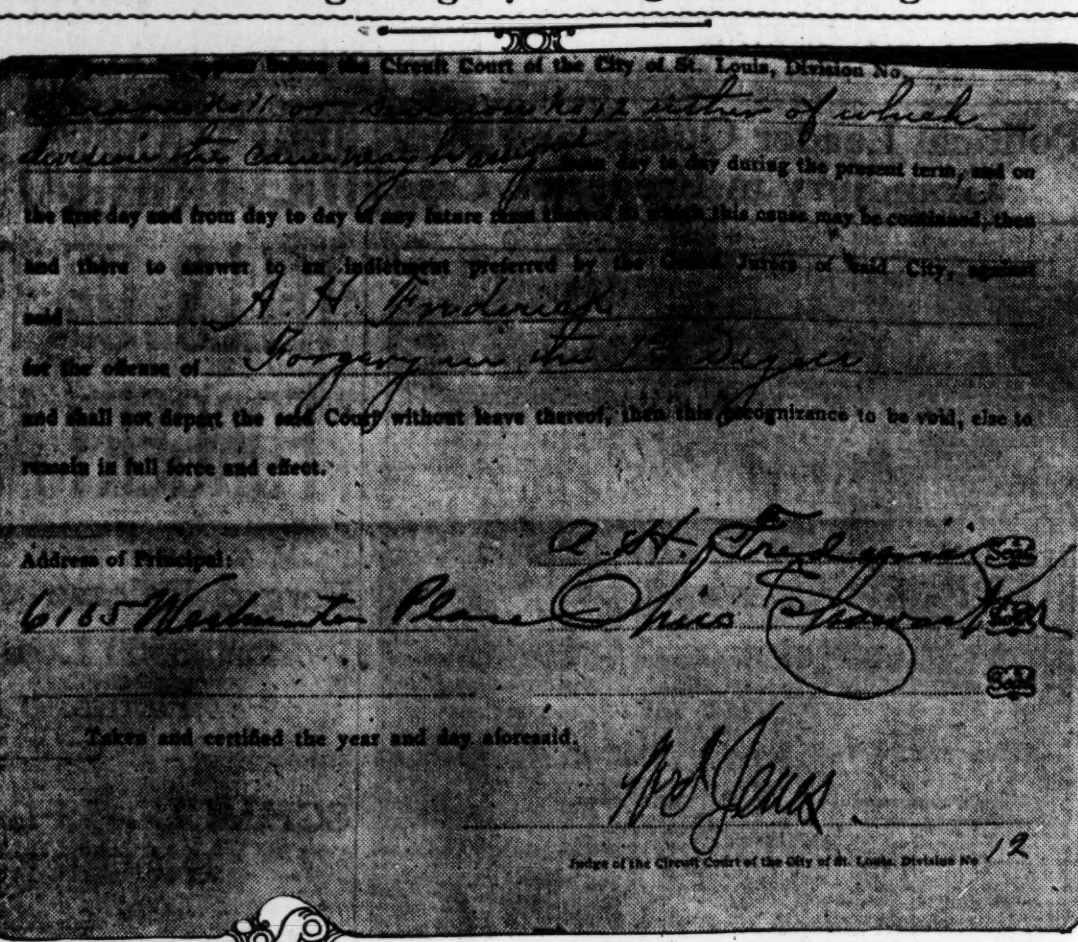 appear before the Circuit Court of the City of St. Louis, Division No.
Division No 11 or Division No 12 either of which
divisions the cause may be assigned from day to day during the present term, and on
the first day and from day to day of any future term thereof to which this cause may be continued, then
and there to answer to an indictment preferred by the Grand Jurors of said City, against
said A. H. Frederick
for the offense of Forgery in the 1st Degree
and shall not depart the said Court without leave thereof, then this recognizance to be void, else to
remain in full force and effect.
A. H. Frederick Seal
Address of Principal:
6165 Westminster Place Seal
Seal
Taken and certified the year and day aforesaid.
Jones
Judge of the Circuit Court of the City of St. Louis, Division No 12